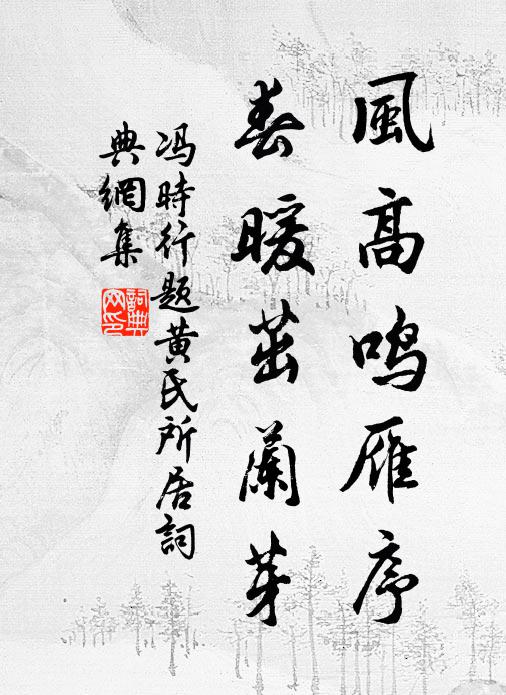 風高鳴雁序
春暖茁蘭芽
冯時行题黄氏所居詞
典網集
詞典
网印